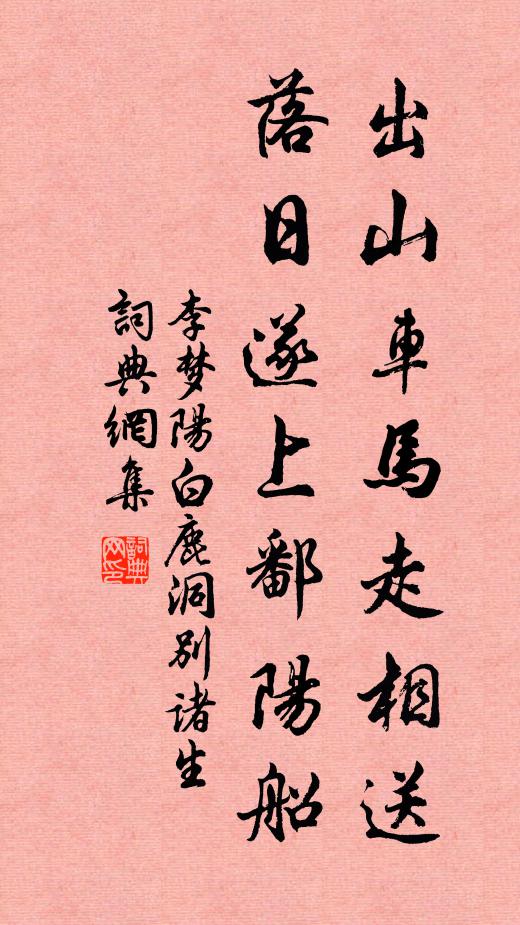 出山車馬走相送
落日遂上鄱陽船
李梦陽白鹿洞别诸生
詞典網集
詞典
网印